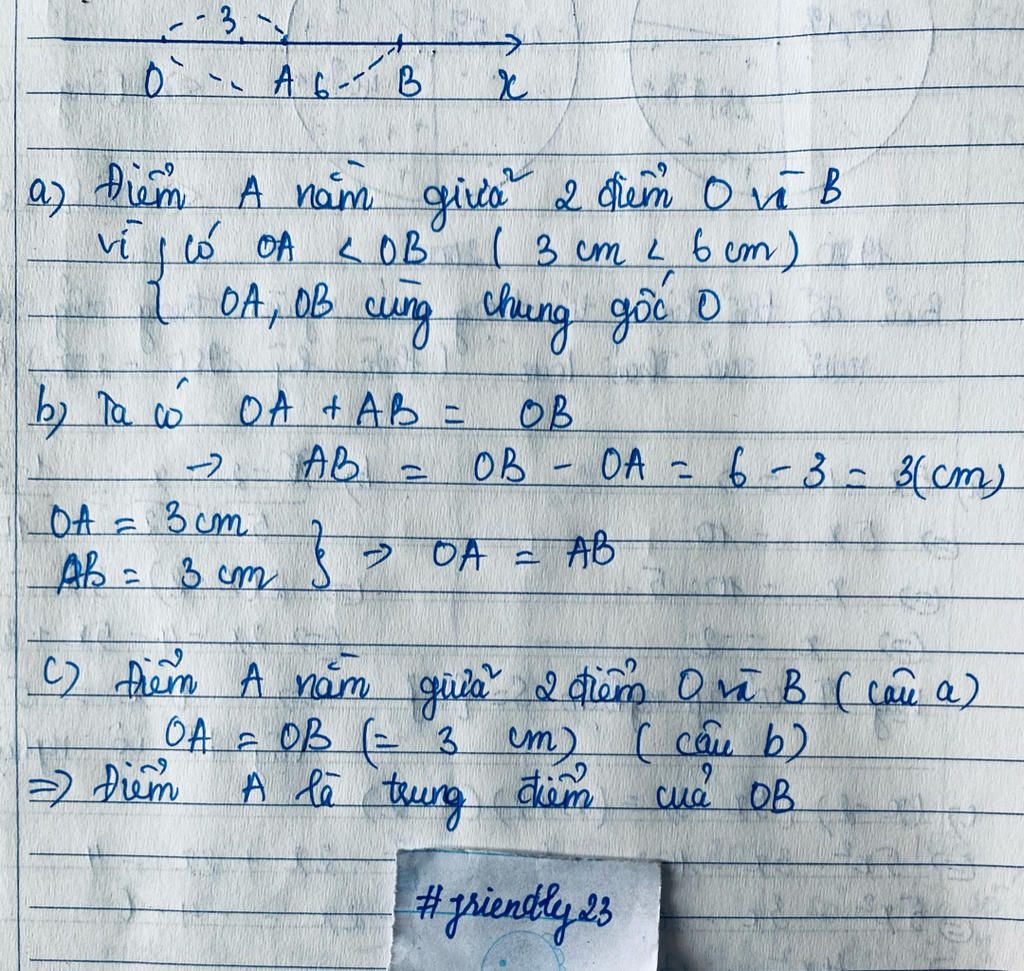 3
O A 6 B x
a) Điểm A nằm giữa 2 điểm O và B
vì { có OA < OB ( 3 cm < 6 cm)
OA, OB cùng chung gốc O
b) Ta có OA + AB = OB
→ AB = OB - OA = 6 - 3 = 3(cm)
OA = 3 cm
AB = 3 cm } → OA = AB
c) Điểm A nằm giữa 2 điểm O và B ( câu a)
OA = OB (= 3 cm) ( câu b)
=> Điểm A là trung điểm của OB
#friendly23